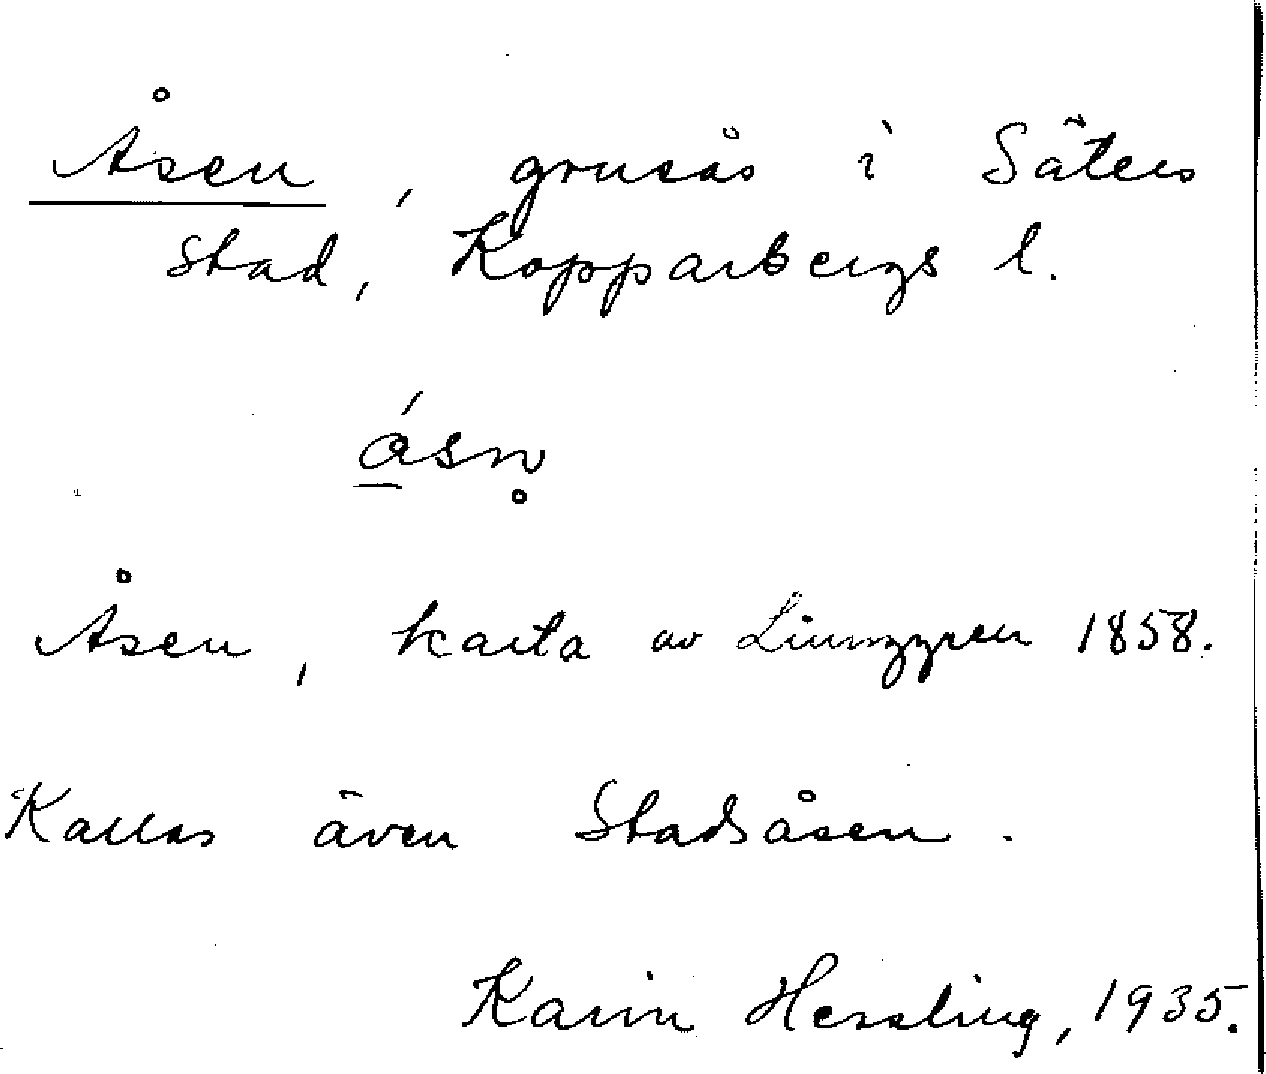 Åsen, grusås i Säters
stad, Kopparbergs l.
ásn̥
Åsen, karta av Ljunggren 1858.
Kallas även Stadsåsen.
Karin Hessling, 1935.